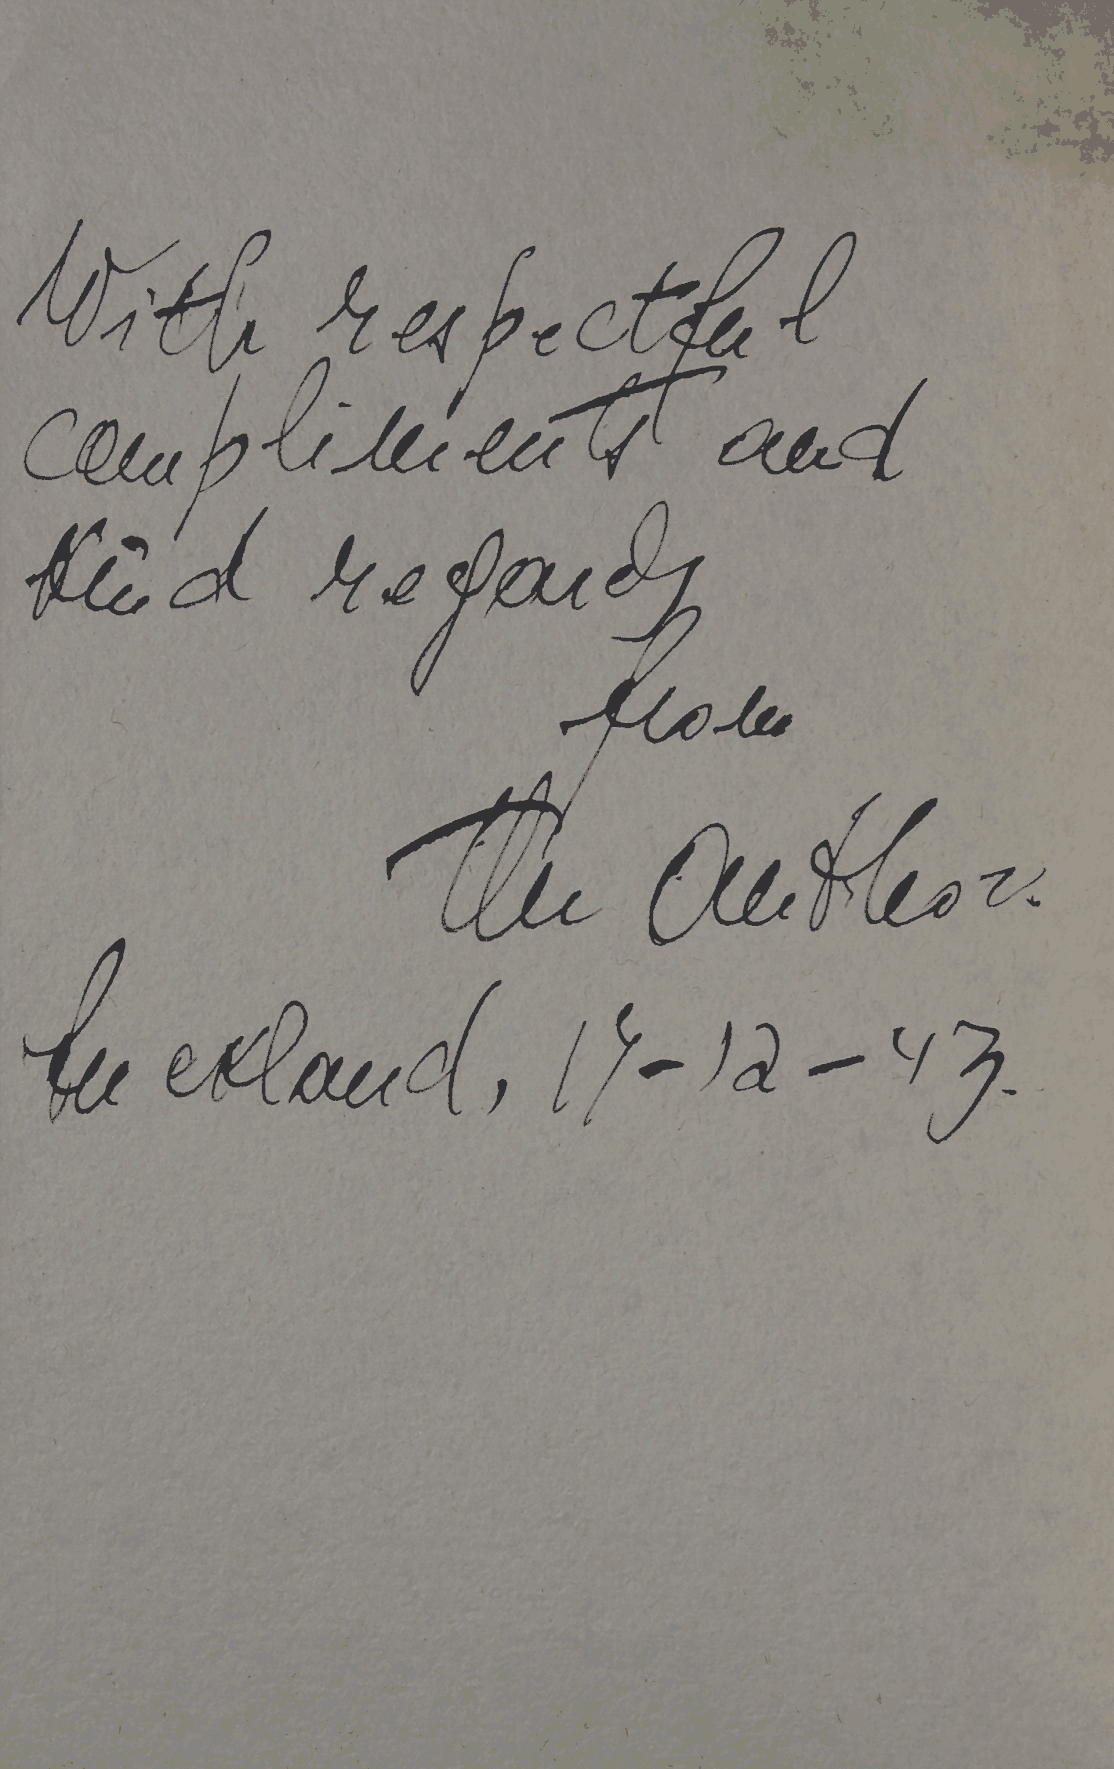 With respectful
compliments and
kind regards
from
The Author.
Auckland, 14-12-43.